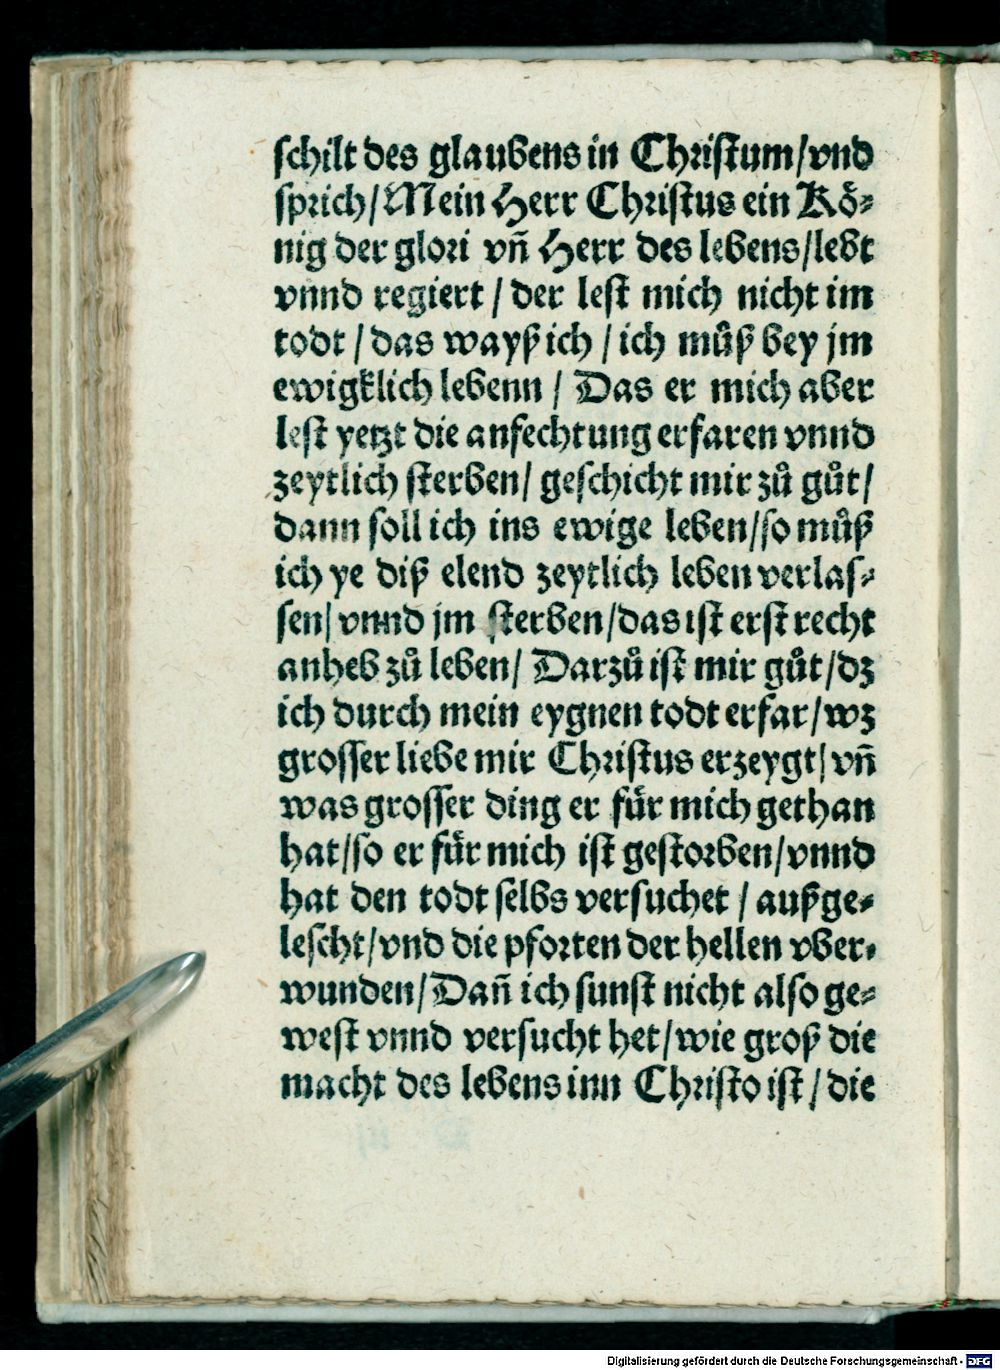 schilt des glaubens in Christum/vnd
sprich/Mein Herr Christus ein Koͤ⸗
nig der glori vñ Herr des lebens/lebt
vnnd regiert / der lest mich nicht im
todt / das wayß ich / ich muͦß bey jm
ewigklich lebenn / Das er mich aber
lest yetzt die anfechtung erfaren vnnd
zeytlich sterben/ geschicht mir zuͦ guͦt/
dann soll ich ins ewige leben/so muͦß
ich ye diß elend zeytlich leben verlas⸗
sen/ vnnd jm sterben/das ist erst recht
anheb zuͦ leben/ Darzuͦ ist mir guͦt/dz
ich durch mein eygnen todt erfar/wz
grosser liebe mir Christus erzeygt/ vñ
was grosser ding er fuͤr mich gethan
hat/so er fuͤr mich ist gestorben/vnnd
hat den todt selbs versuchet / außge⸗
lescht/vnd die pforten der hellen vber⸗
wunden/Dañ ich sunst nicht also ge⸗
west vnnd versucht het/wie groß die
macht des lebens inn Christo ist / die
Digitalisierung gefördert durch die Deutsche Forschungsgemeinschaft - DFG